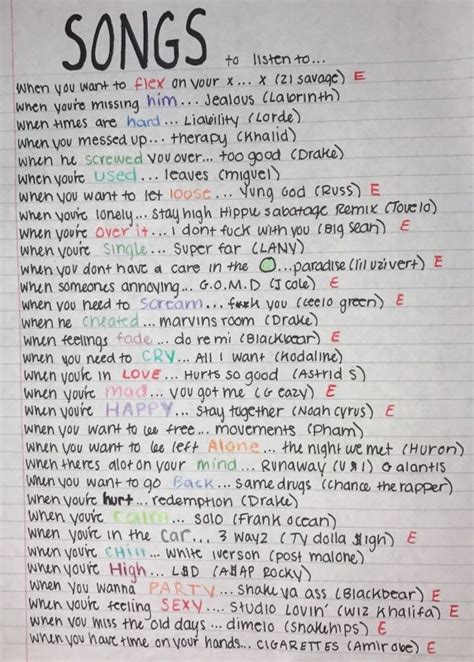 SONGS to listen to...
When you want to flex on your x... x (21 savage) E
When you're missing him... Jealous (Labrinth)
When times are hard... Liability (Lorde)
When you messed up... therapy (Khalid)
When he screwed you over... too good (Drake)
When you're used... leaves (miguel)
When you want to let loose... Yung God (Russ) E
When you're lonely... stay high Hippie sabatage Remix (Tove lo)
When you're over it... I dont fuck with you (Big Sean) E
When you're single... Super far (LANY)
When you dont have a care in the ...paradise (lil uzi vert) E
When someones annoying... G.O.M.D (J cole) E
When you need to scream... f**k you (ceelo green) E
When he cheated... marvins room (Drake)
When feelings fade... do re mi (Blackbear) E
When you need to CRY... All I want (Kodaline)
When you're in LOVE... Hurts so good (Astrid S)
When you're mad... you got me (G eazy) E
When you're HAPPY... Stay together (Noah cyrus) E
When you want to be free... movements (Pham)
When you want to be left Alone... the night we met (Huron)
When theres alot on your mind... Runaway (U & I) Galantis
When you want to go Back... same drugs (chance the rapper)
When you're hurt... redemption (Drake)
When you're calm... solo (Frank ocean)
When you're in the car... 3 wayz (Ty dolla $ign) E
When you're CHill... white iverson (post malone)
When you're High... L$D (A$AP Rocky)
When you wanna PARTY... shake ya ass (Blackbear) E
When you're feeling SEXY... studio Lovin' (wiz Khalifa) E
When you miss the old days... dimelo (Snakehips) E
When you have time on your hands... CIGARETTES (Amir obe) E